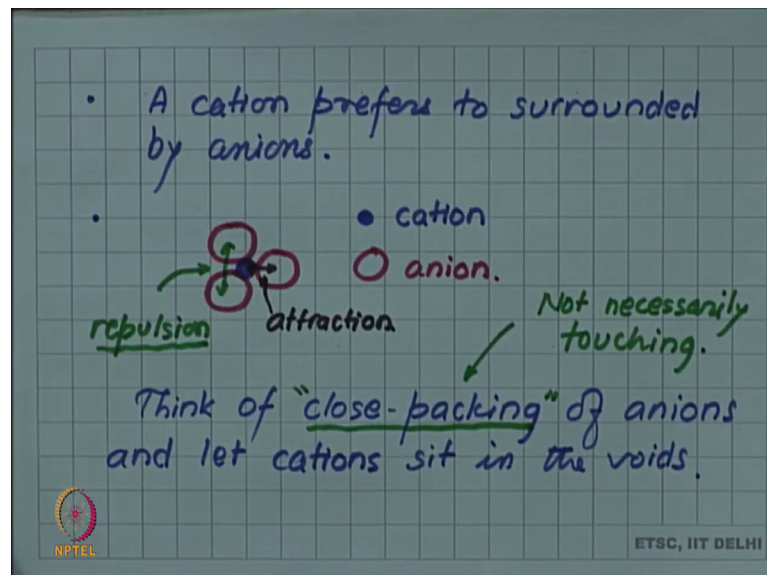 • A cation prefers to surrounded
by anions.
• cation
anion.
repulsion
attraction
Not necessarily
touching.
Think of "close-packing" of anions
and let cations sit in the voids.
NPTEL
ETSC, IIT DELHI